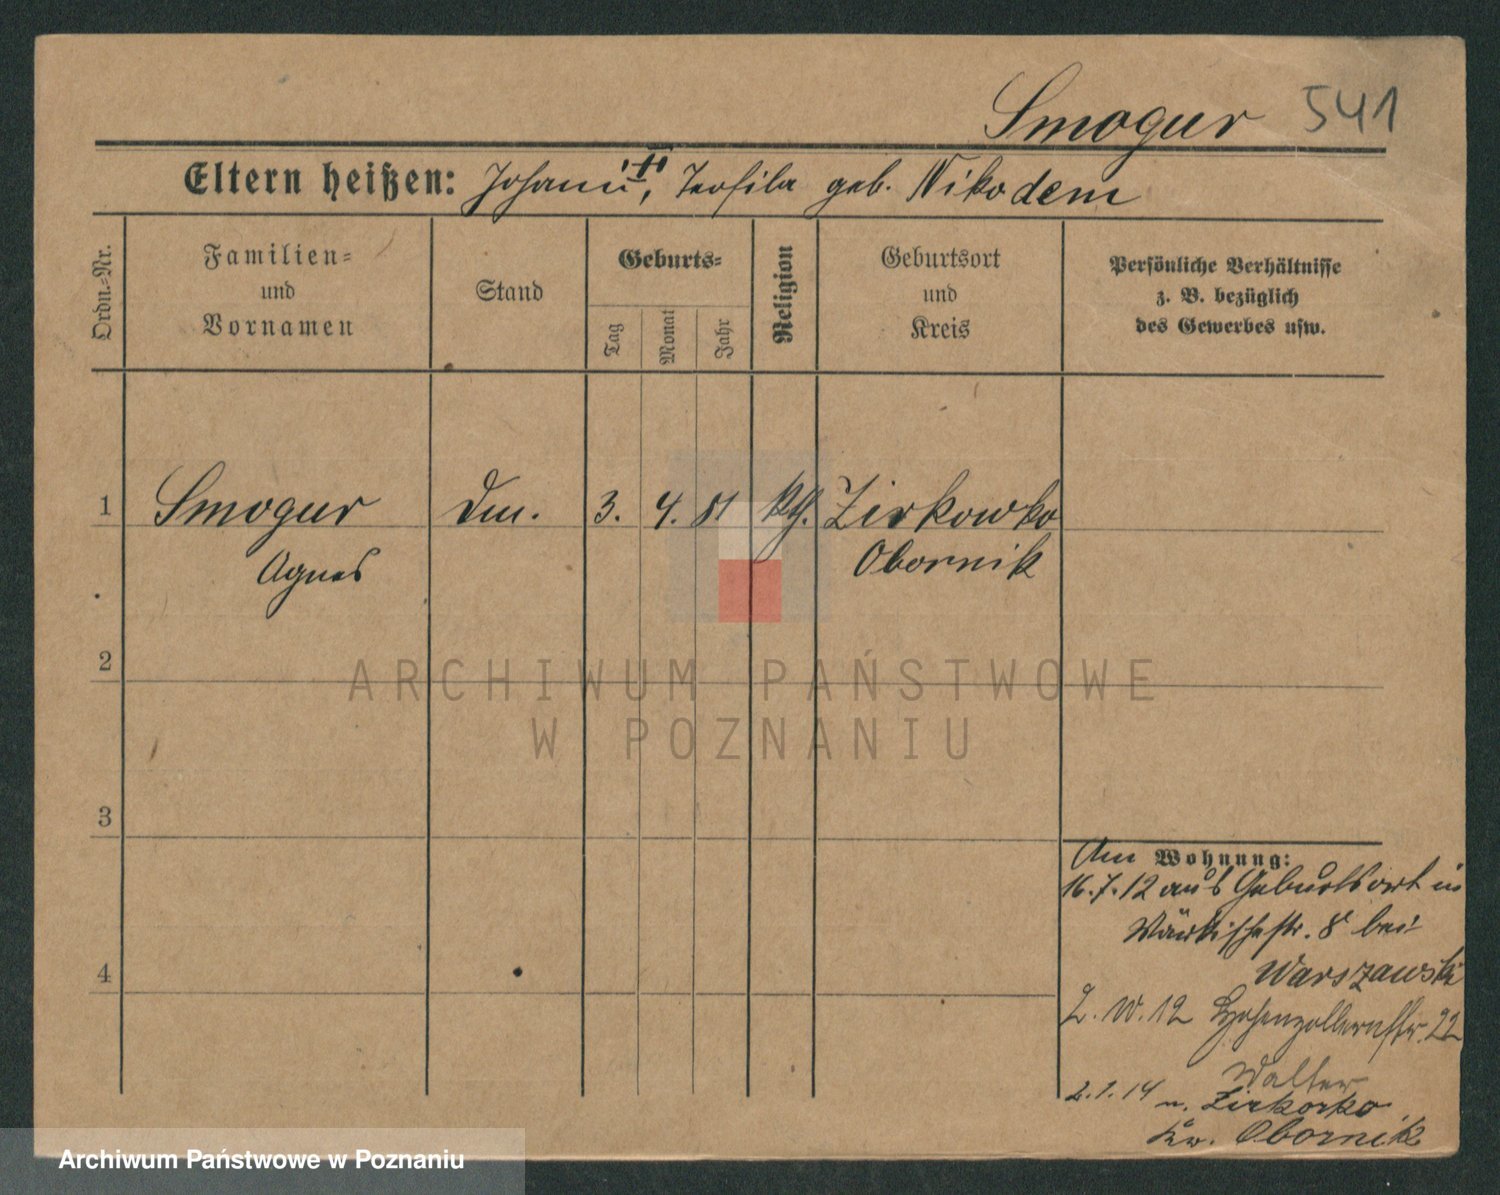 Smogur 541
Eltern heißen: Johann ††, Teofila geb. Nikodem
Ordn.-Nr.
Familien-
und
Vornamen
Stand
Geburts-
Tag
Monat
Jahr
Religion
Geburtsort
und
Kreis
Persönliche Verhältnisse
z. B. bezüglich
des Gewerbes usw.
1 Smogur 3. 4. 81 kth. Zirkowko
Agnes Obornik
2
3
4
ARCHIWUM PAŃSTWOWE
W POZNANIU
Am Wohnung:
16.7.12 aus Geburtsort in
Märkischestr. 8 bei
Warszawski
Z. W. 12 Hohenzollernstr. 22
Walter
2.1.14 n. Zirkorko
Kr. Obornik
Archiwum Państwowe w Poznaniu